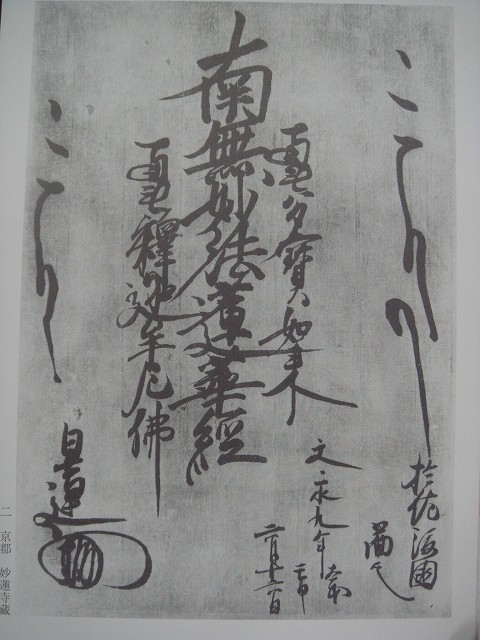 於佐渡國
圖之
文永九年
壬申
六月十六日
南無多寶如来
南無妙法蓮華經
南無釋迦牟尼佛
日蓮
二 京都 妙蓮寺蔵